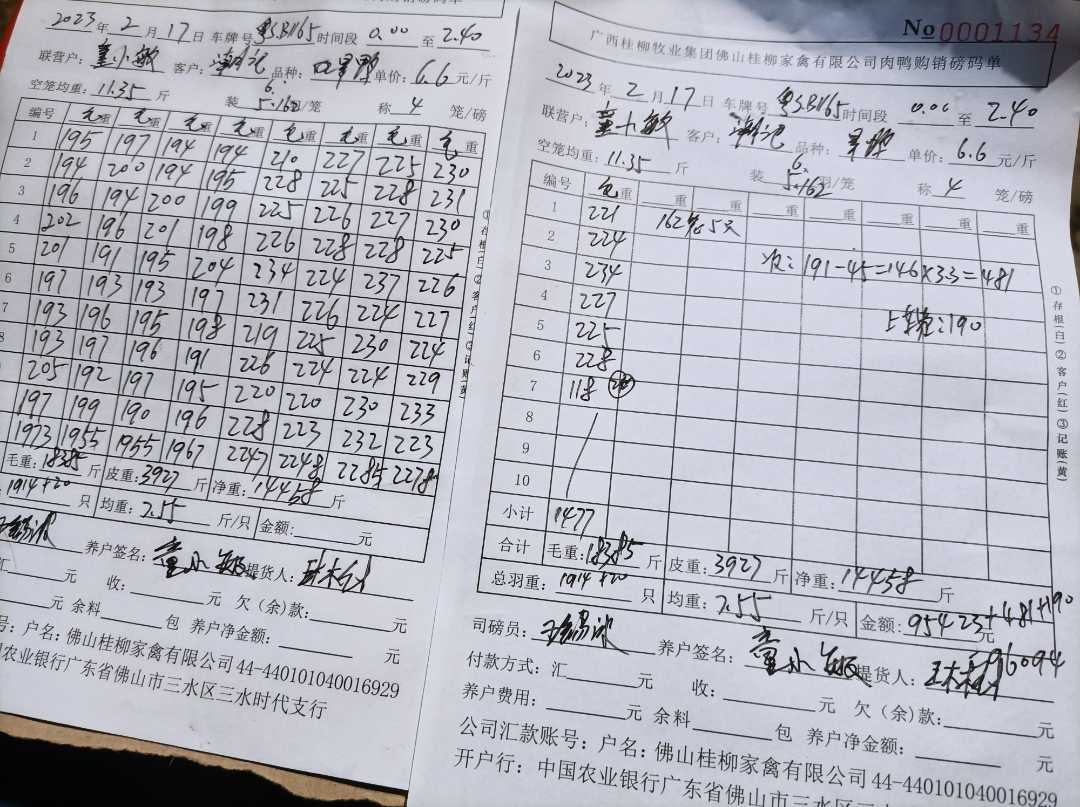 肉鸭购销磅码单
2023年2月17日 车牌号 粤S.B1165 时间段 0.00 至 2.40
联营户: 童小敏 客户: 品种: 单价: 6.6 元/斤
空笼均重: 11.35 斤 装 6. 5.162 羽/笼 称 4 笼/磅
编号 毛重 毛重 毛重 毛重 毛重 毛重 毛重 毛重
1 195 197 194 194 210 227 225 230
2 194 200 194 195 228 225 228 231
3 196 194 200 199 225 226 227 230
4 202 196 201 198 226 228 228 225
5 201 191 195 204 234 224 237 226
6 197 193 193 197 231 226 224 227
7 193 196 195 198 219 225 230 224
8 193 197 196 191 226 224 224 229
205 192 197 195 220 220 230 233
197 199 190 196 228 223 232 223
1973 1955 1955 1967 2247 2248 2285 2278
毛重: 18385 斤 皮重: 3927 斤 净重: 14458 斤
1914+20 只 均重: 7.55 斤/只 金额: 元
养户签名: 童小敏 提货人:
汇 元 收: 元 欠(余)款: 元
元 余料 包 养户净金额: 元
号: 户名: 佛山桂柳家禽有限公司 44-440101040016929
农业银行广东省佛山市三水区三水时代支行
①存根(白)②客户(红)③记账(黄)
No 0001134
广西桂柳牧业集团佛山桂柳家禽有限公司肉鸭购销磅码单
2023年2月17日 车牌号 粤S.B1165 时间段 0.00 至 2.40
联营户: 童小敏 客户: 品种: 单价: 6.6 元/斤
空笼均重: 11.35 斤 装 6. 5.162 羽/笼 称 4 笼/磅
编号 毛重 重 重 重 重 重 重 重
1 221 162笼5天
2 224
3 234 次: 191-45=146×3.3=481
4 227
5 225 190
6 228
7 118
8
9
10
小计 1477
合计 毛重: 18385 斤 皮重: 3927 斤 净重: 14458 斤
总羽重: 1914+20 只 均重: 7.55 斤/只 金额: 95423+481+190 元
96094
司磅员: 养户签名: 童小敏 提货人:
付款方式: 汇 元 收: 元 欠(余)款: 元
养户费用: 元 余料 包 养户净金额: 元
公司汇款账号: 户名: 佛山桂柳家禽有限公司 44-440101040016929
开户行: 中国农业银行广东省佛山市三水
①存根(白)②客户(红)③记账(黄)